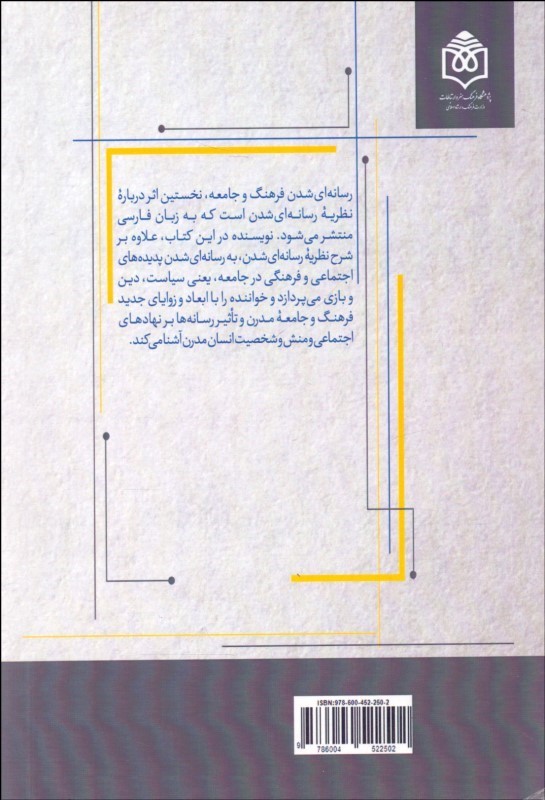 پژوهشگاه فرهنگ، هنر و ارتباطات
وزارت فرهنگ و ارشاد اسلامی
رسانه‌ای شدن فرهنگ و جامعه، نخستین اثر دربارهٔ
نظریهٔ رسانه‌ای شدن است که به زبان فارسی
منتشر می‌شود. نویسنده در این کتاب، علاوه بر
شرح نظریهٔ رسانه‌ای شدن، به رسانه‌ای شدن پدیده‌های
اجتماعی و فرهنگی در جامعه، یعنی سیاست، دین
و بازی می‌پردازد و خواننده را با ابعاد و زوایای جدید
فرهنگ و جامعهٔ مدرن و تأثیر رسانه‌ها بر نهادهای
اجتماعی و منش و شخصیت انسان مدرن آشنا می‌کند.
ISBN:978-600-452-250-2
9 786004 522502